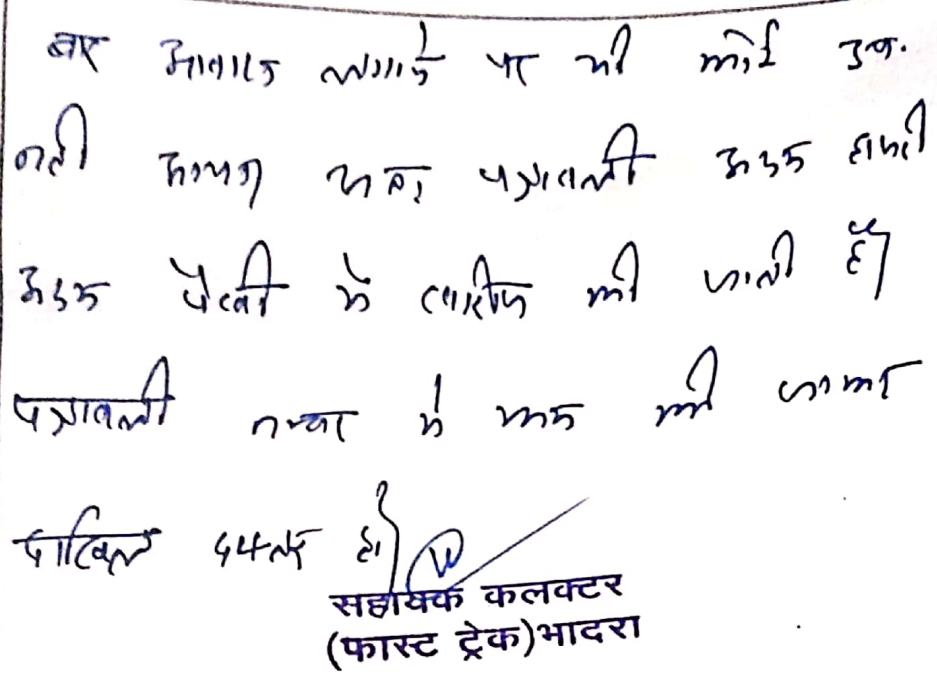 बार आवाज लगाने पर भी कोई उप.
नही आया अतः पत्रावली अदम हाजरी
अदम पैरवी मे खारीज की जाती है।
पत्रावली नम्बर से कम की जाकर
दाखिल दफ्तर हो।
सहायक कलक्टर
(फास्ट ट्रेक)भादरा